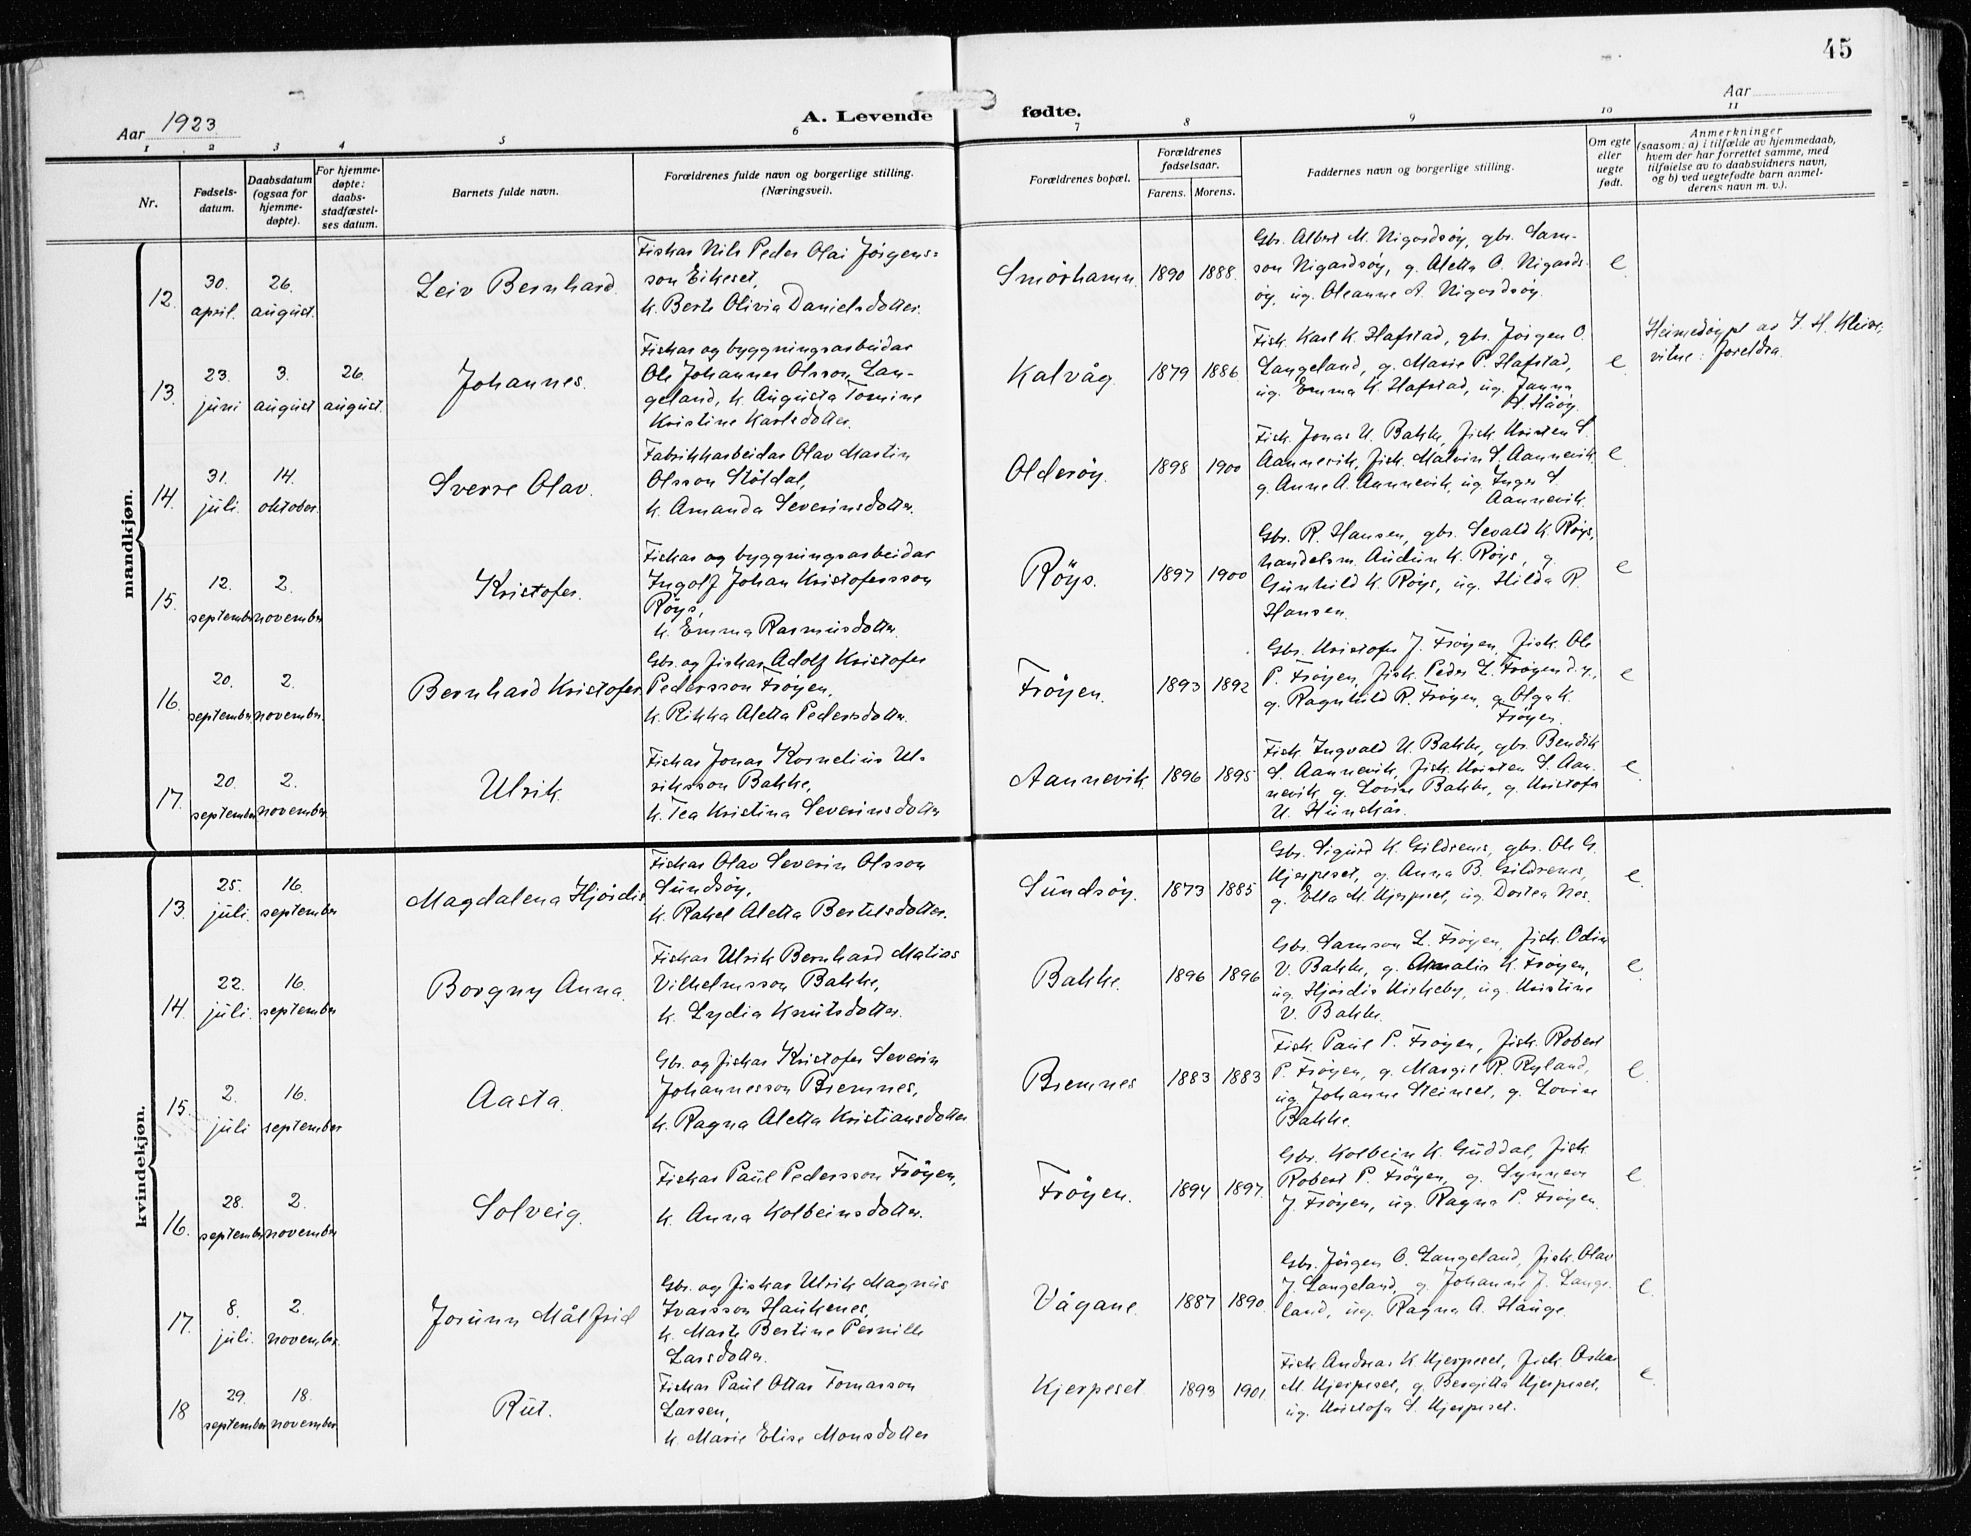 45
Aar 1923
A. Levende fødte.
Aar
1 2 3 4 5 6 7 8 9 10 11
Nr.
Fødsels-
datum.
Daabsdatum
(ogsaa for
hjemme-
døpte).
For hjemme-
døpte:
daabs-
stadfæstel-
ses datum.
Barnets fulde navn.
Forældrenes fulde navn og borgerlige stilling.
(Næringsvei).
Forældrenes bopæl.
Forældrenes
fødselsaar.
Farens. Morens.
Faddernes navn og borgerlige stilling.
Om egte
eller
uegte
født.
Anmerkninger
(saasom: a) i tilfælde av hjemmedaab,
hvem der har forrettet samme, med
tilføielse av to daabsvidners navn,
og b) ved uegtefødte barn anmel-
derens navn m. v.).
mandkjøn.
12.
30.
april.
26.
august.
Leiv Bernhard.
Fiskar Nils Peder Olai Jørgens-
son Eikeset,
k. Berte Olivia Danielsdotter.
Smörhamn.
1890 1888.
Gbr. Albert M. Nigardsöy, gbr. Sam-
son Nigardsöy, g. Aletta O. Nigards-
öy, ug. Oleanne A. Nigardsöy.
e.
13.
23.
juni
3.
august
26.
august.
Johannes.
Fiskar og byggningsarbeidar
Ole Johannes Olsson Lan-
geland, k. Augusta Tomine
Kristine Karlsdotter.
Kalvåg.
1879 1886.
Fisk. Karl K. Hafstad, gbr. Jørgen O.
Langeland, g. Marie P. Hafstad,
ug. Emma K. Hafstad, ug. Janna
H. Håöy.
e.
Heimedöypt av J. H. Kleive,
vitne: foreldra.
14.
31.
juli.
14.
oktober.
Sverre Olav.
Fabrikkarbeidar Olav Martin
Olsson Stöldal,
k. Amanda Severinsdotter.
Olderöy.
1898 1900
Fisk. Jonas U. Bakke, fisk. Kristen S.
Aannevik, fisk. Malvin S. Aannevik,
g. Anne A. Aannevik, ug. Inger S.
Aannevik.
e.
15.
12.
september
2.
november
Kristofer.
Fiskar og byggningsarbeidar
Ingolf Johan Kristofersson
Röys,
k. Emma Rasmusdotter.
Röys.
1897 1900
Gbr. R. Hansen, gbr. Sevald K. Röys,
handelsm. Audun K. Röys, g.
Gunhild K. Röys, ug. Hilda R.
Hansen.
e
16.
20.
september
2.
november.
Bernhard Kristofer.
Gbr. og fiskar Adolf Kristofer
Pedersson Fröyen,
k. Rikka Aletta Pedersdotter.
Fröyen.
1893 1892
Gbr. Kristofer J. Fröyen, fisk. Ole
P. Fröyen, fisk. Peder L. Fröyen d.y.,
g. Ragnhild R. Fröyen, g. Olga K.
Fröyen.
e
17.
20.
september
2.
november.
Ulrik.
Fiskar Jonas Kornelius Ul-
riksson Bakke,
k. Tea Kristina Severinsdotter
Aannevik.
1896 1895
Fisk. Ingvald U. Bakke, gbr. Bendik
S. Aannevik, fisk. Kristen S. Aan-
nevik, g. Lovise Bakke, g. Kristofa
U. Hunskår.
e.
kvindekjøn.
13.
25.
juli.
16.
september
Magdalena Hjördis
Fiskar Olav Severin Olsson
Sundsöy,
k. Rakel Aletta Bertelsdotter.
Sundsöy.
1873 1885
Gbr. Sigurd K. Gildrenes, gbr. Ole G.
Kjerpeset, g. Anna B. Gildrenes,
g. Ella M. Kjerpeset, ug. Dortea Nes.
e.
14.
22.
juli.
16.
september
Borgny Anna.
Fiskar Ulrik Bernhard Matias
Vilhelmsson Bakke,
k. Lydia Knutsdotter.
Bakke.
1896 1896
Gbr. Samson L. Fröyen, fisk. Odin
V. Bakke, g. Amalia K. Fröyen,
ug. Hjördis Kirkeby, ug. Kristine
V. Bakke.
e.
15.
2.
juli
16.
september
Aasta.
Gbr. og fiskar Kristofer Severin
Johannesson Bremnes,
k. Ragna Aletta Kristiansdotter
Bremnes
1883 1883
Fisk. Paul P. Fröyen, fisk. Robert
P. Fröyen, g. Margit R. Ryland,
ug. Johanne Steinset, g. Lovise
Bakke.
e.
16.
28.
september
2.
november
Solveig.
Fiskar Paul Pedersson Fröyen,
k. Anna Kolbeinsdotter.
Fröyen.
1894 1897.
Gbr. Kolbein K. Guddal, fisk.
Robert P. Fröyen, g. Synneve
J. Fröyen, ug. Ragna P. Fröyen.
e.
17.
8.
juli.
2.
november.
Jorunn Målfrid
Gbr. og fiskar Ulrik Magnus
Ivarsson Haukenes,
k. Marte Bertine Pernille
Larsdotter.
Vågane.
1887 1890.
Gbr. Jörgen O. Langeland, fisk. Olav
J. Langeland, g. Johanne J. Lange-
land, ug. Ragna A. Hauge.
e.
18
29.
september
18.
november
Rut.
Fiskar Paul Ottar Tomasson
Larsen,
k. Marie Elise Monsdotter
Kjerpeset
1893 1901.
Fisk. Andreas K. Kjerpeset, fisk. Oskar
M. Kjerpeset, g. Bergitta Kjerpeset,
ug. Kristofa S. Kjerpeset.
e.